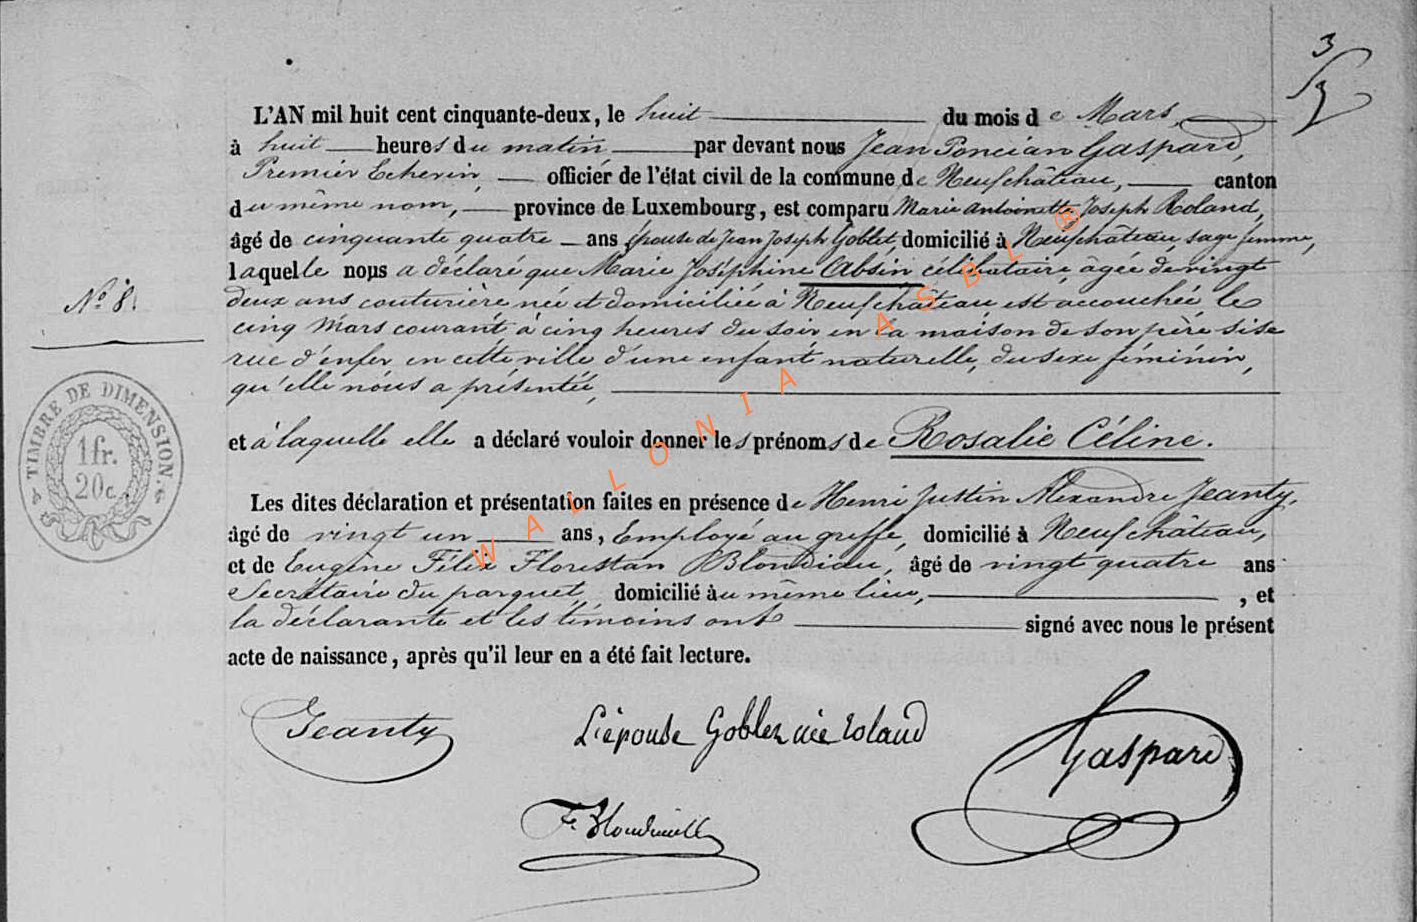 3/3
L'AN mil huit cent cinquante-deux, le huit du mois de Mars,
à huit heures du matin, par devant nous Jean Poncian Gaspard,
Premier Echevin, officier de l'état civil de la commune de Neufchâteau, canton
du même nom, province de Luxembourg, est comparu Marie Antoinette Joseph Roland,
âgé de cinquante quatre ans épouse de Jean Joseph Goblet, domicilié à Neufchâteau sage femme,
laquelle nous a déclaré que Marie Joséphine Absin célibataire, âgée de vingt
deux ans couturière née et domiciliée à Neufchâteau est accouchée le
N° 8.
cinq Mars courant à cinq heures du soir en la maison de son père sise
rue d'enfer en cette ville d'une enfant naturelle, du sexe féminin,
qu'elle nous a présentée,
TIMBRE DE DIMENSION.
1fr.
20c.
et à laquelle elle a déclaré vouloir donner les prénoms de Rosalie Céline.
Les dites déclaration et présentation faites en présence de Henri Justin Alexandre Jeanty,
âgé de vingt un ans, Employé au greffe, domicilié à Neufchâteau,
et de Eugène Félix Florestan Blondiau, âgé de vingt quatre ans
Secrétaire du parquet, domicilié au même lieu, , et
la déclarante et les témoins ont signé avec nous le présent
acte de naissance, après qu'il leur en a été fait lecture.
Jeanty L'épouse Goblet née roland Gaspard
WALLONIA ASBL ®